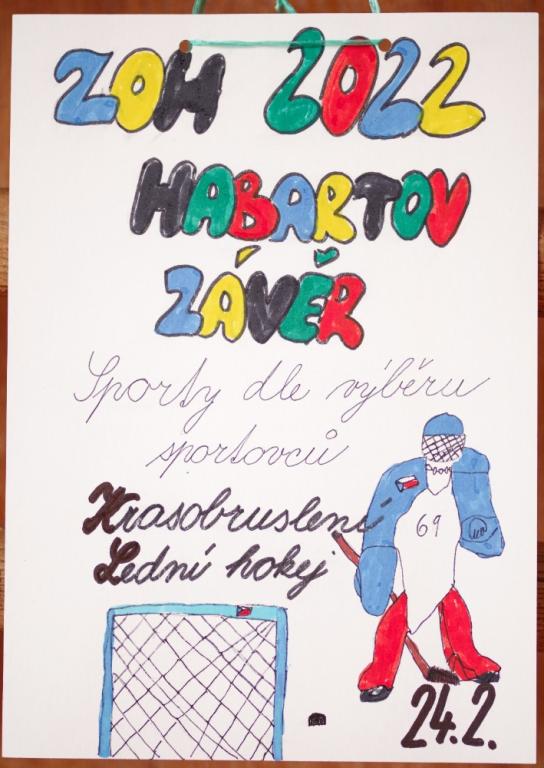 ZOH 2022
HABARTOV
ZÁVĚR
Sporty dle výběru
sportovců
Krasobruslení
Lední hokej
69
24.2.